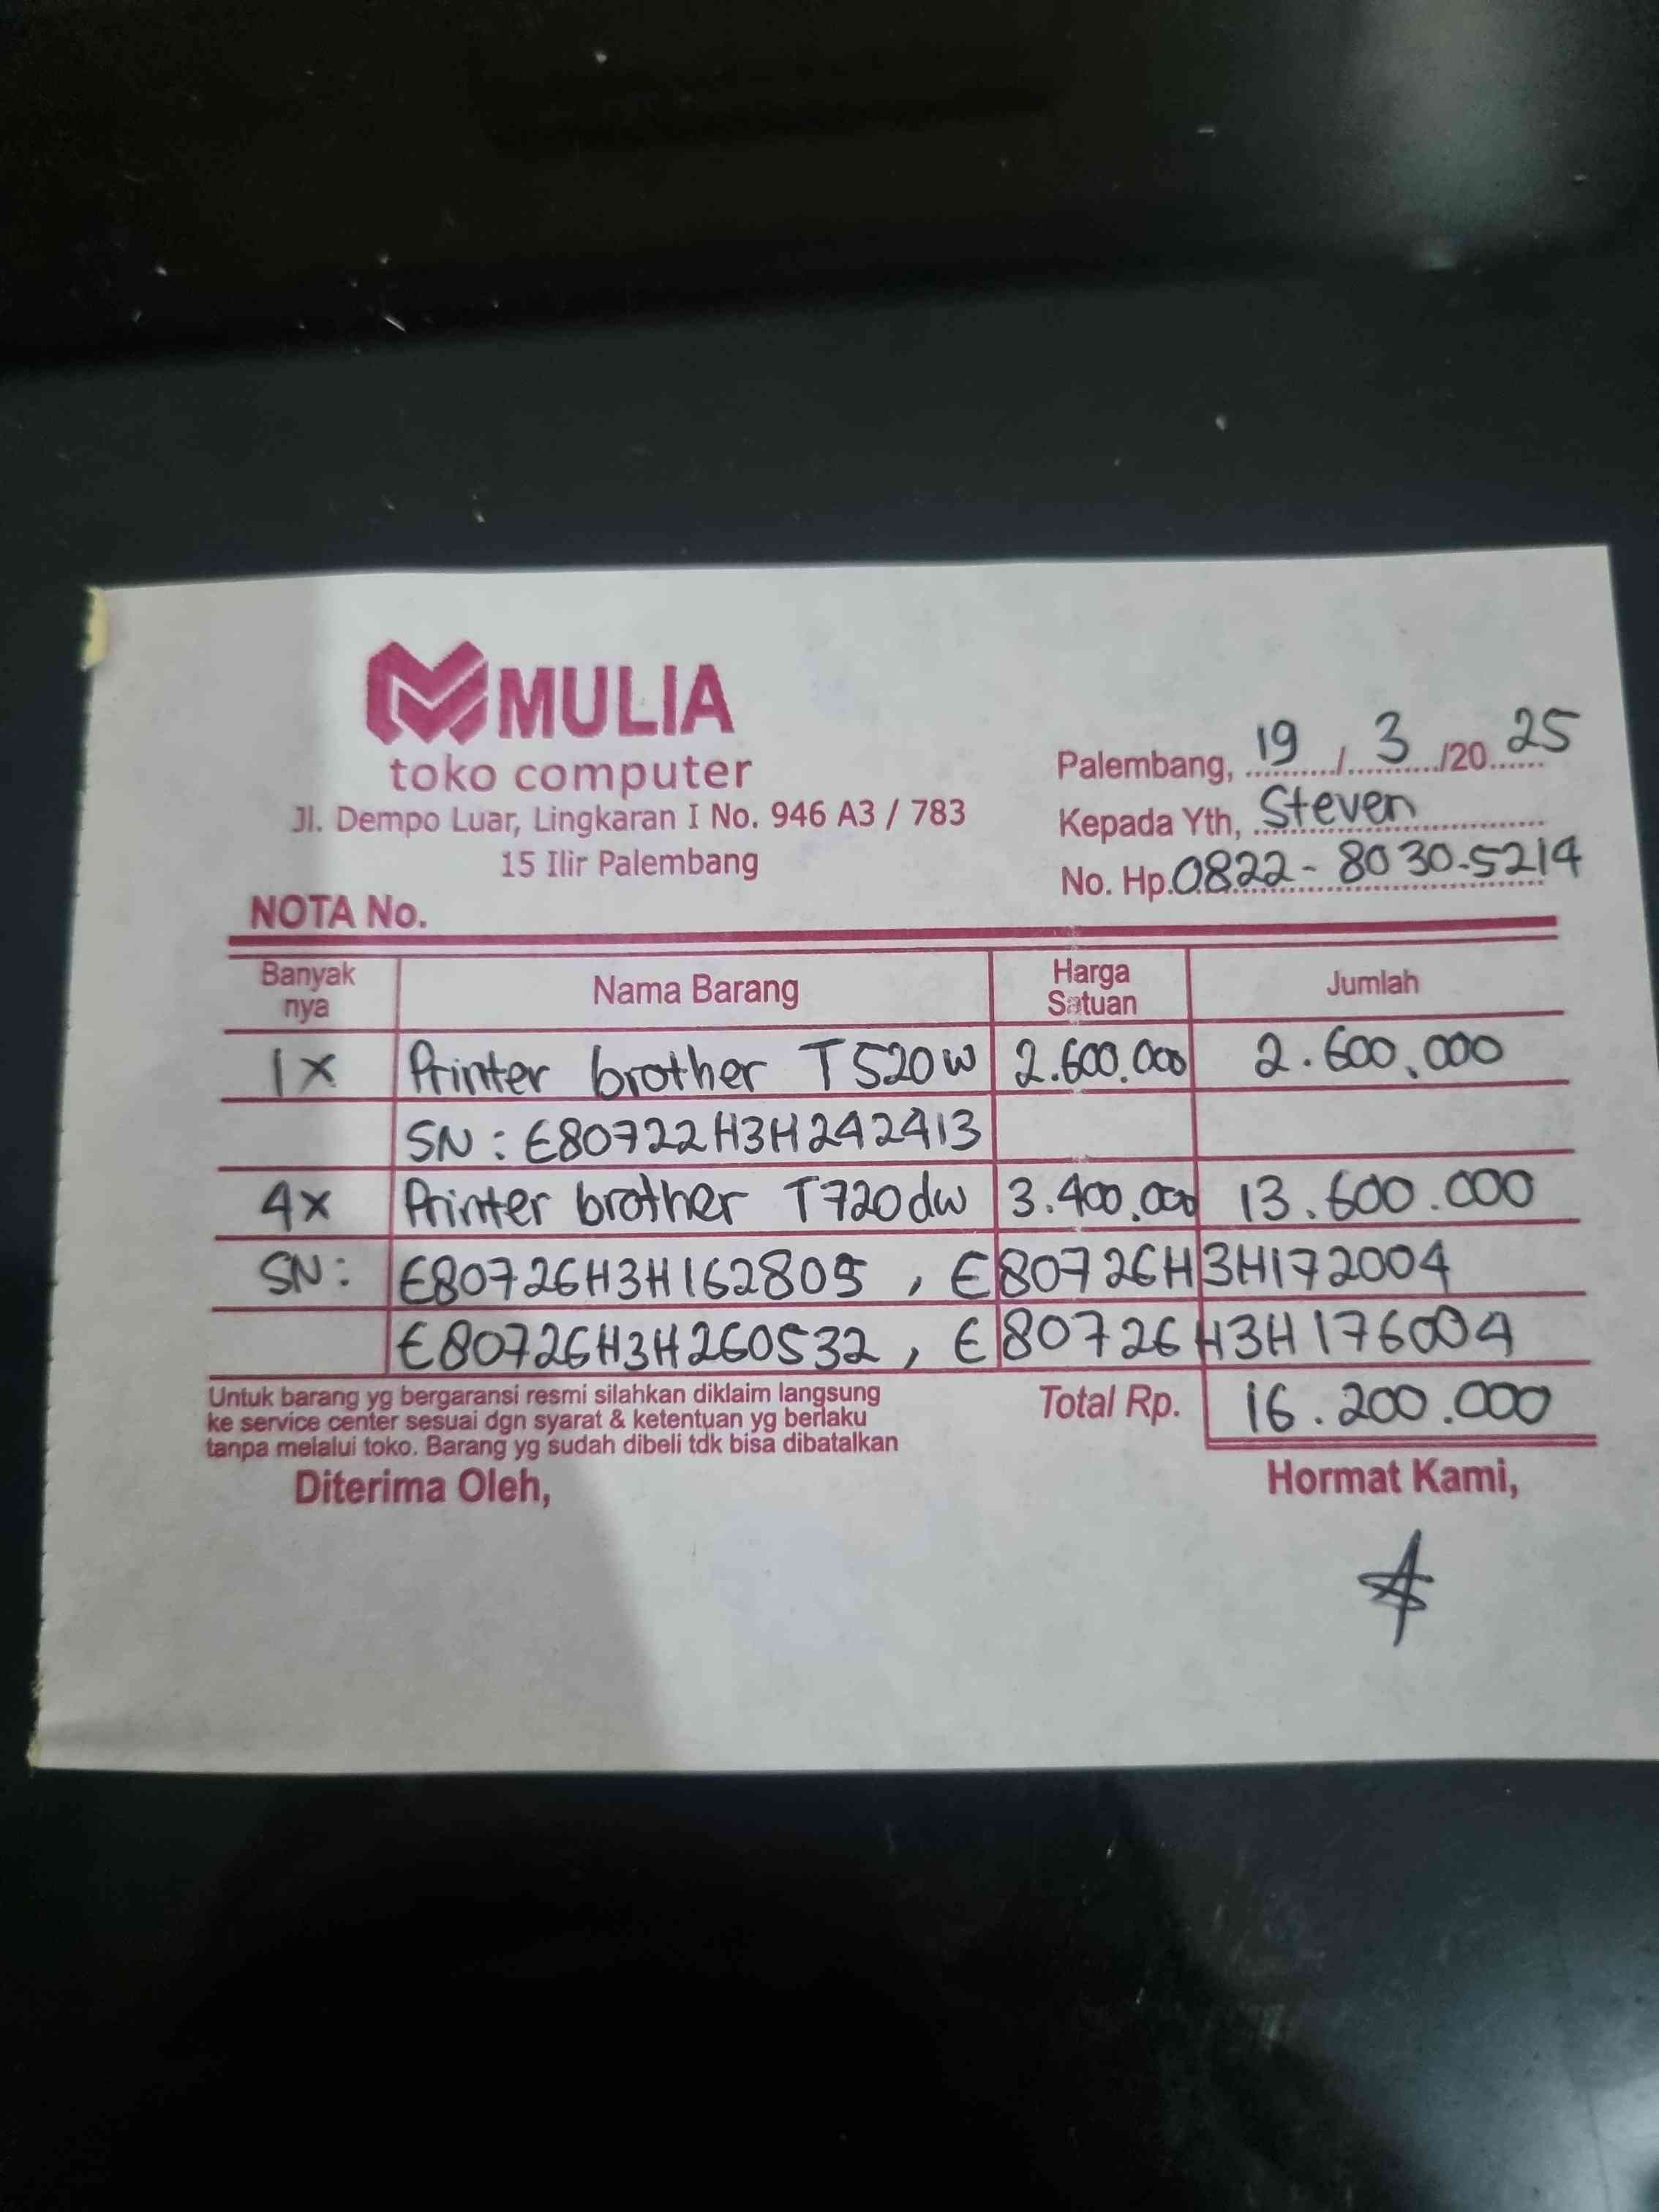 MULIA
toko computer
Jl. Dempo Luar, Lingkaran I No. 946 A3 / 783
15 Ilir Palembang
Palembang, 19 / 3 /20 25
Kepada Yth, Steven
No. Hp. 0822-8030-5214
NOTA No.
Banyak nya Nama Barang Harga Satuan Jumlah
1x Printer brother T520w 2.600.000 2.600.000
SN : E80722H3H242413
4x Printer brother T720dw 3.400.000 13.600.000
SN: E80726H3H162805 , E80726H3H172004
E80726H3H260532 , E80726H3H176004
Untuk barang yg bergaransi resmi silahkan diklaim langsung
ke service center sesuai dgn syarat & ketentuan yg berlaku
tanpa melalui toko. Barang yg sudah dibeli tdk bisa dibatalkan
Total Rp. 16.200.000
Diterima Oleh, Hormat Kami,